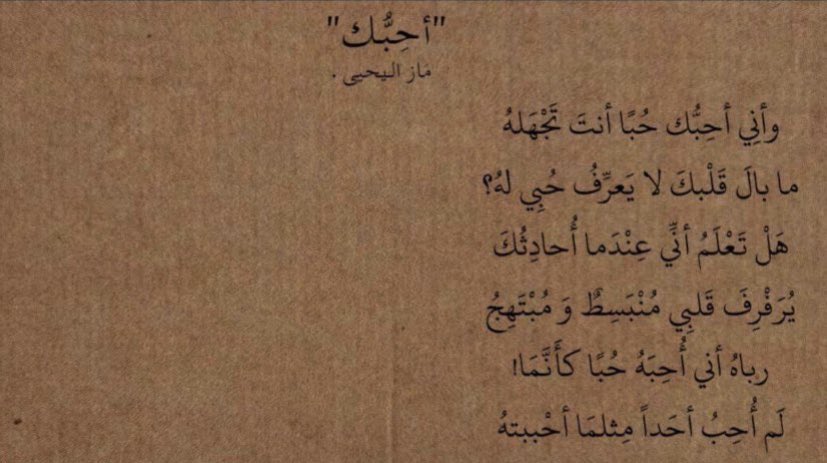 "أحِبُّك"
مَاز اليحيى .
وأنِي أحِبُّك حُبًا أنتَ تَجْهَلهُ
ما بالَ قَلْبكَ لا يَعرِّفُ حُبِي لهُ؟
هَلْ تَعْلَمُ أنِّي عِنْدَما أُحادِثُكَ
يُرَفْرِفَ قَلبِي مُنْبَسِطٌ وَ مُبْتَهِجُ
رباهُ أني أُحِبَهُ حُبًا كأَنَّمَا!
لَم أُحِبُ أحَداً مِثلمَا أحْببتهُ